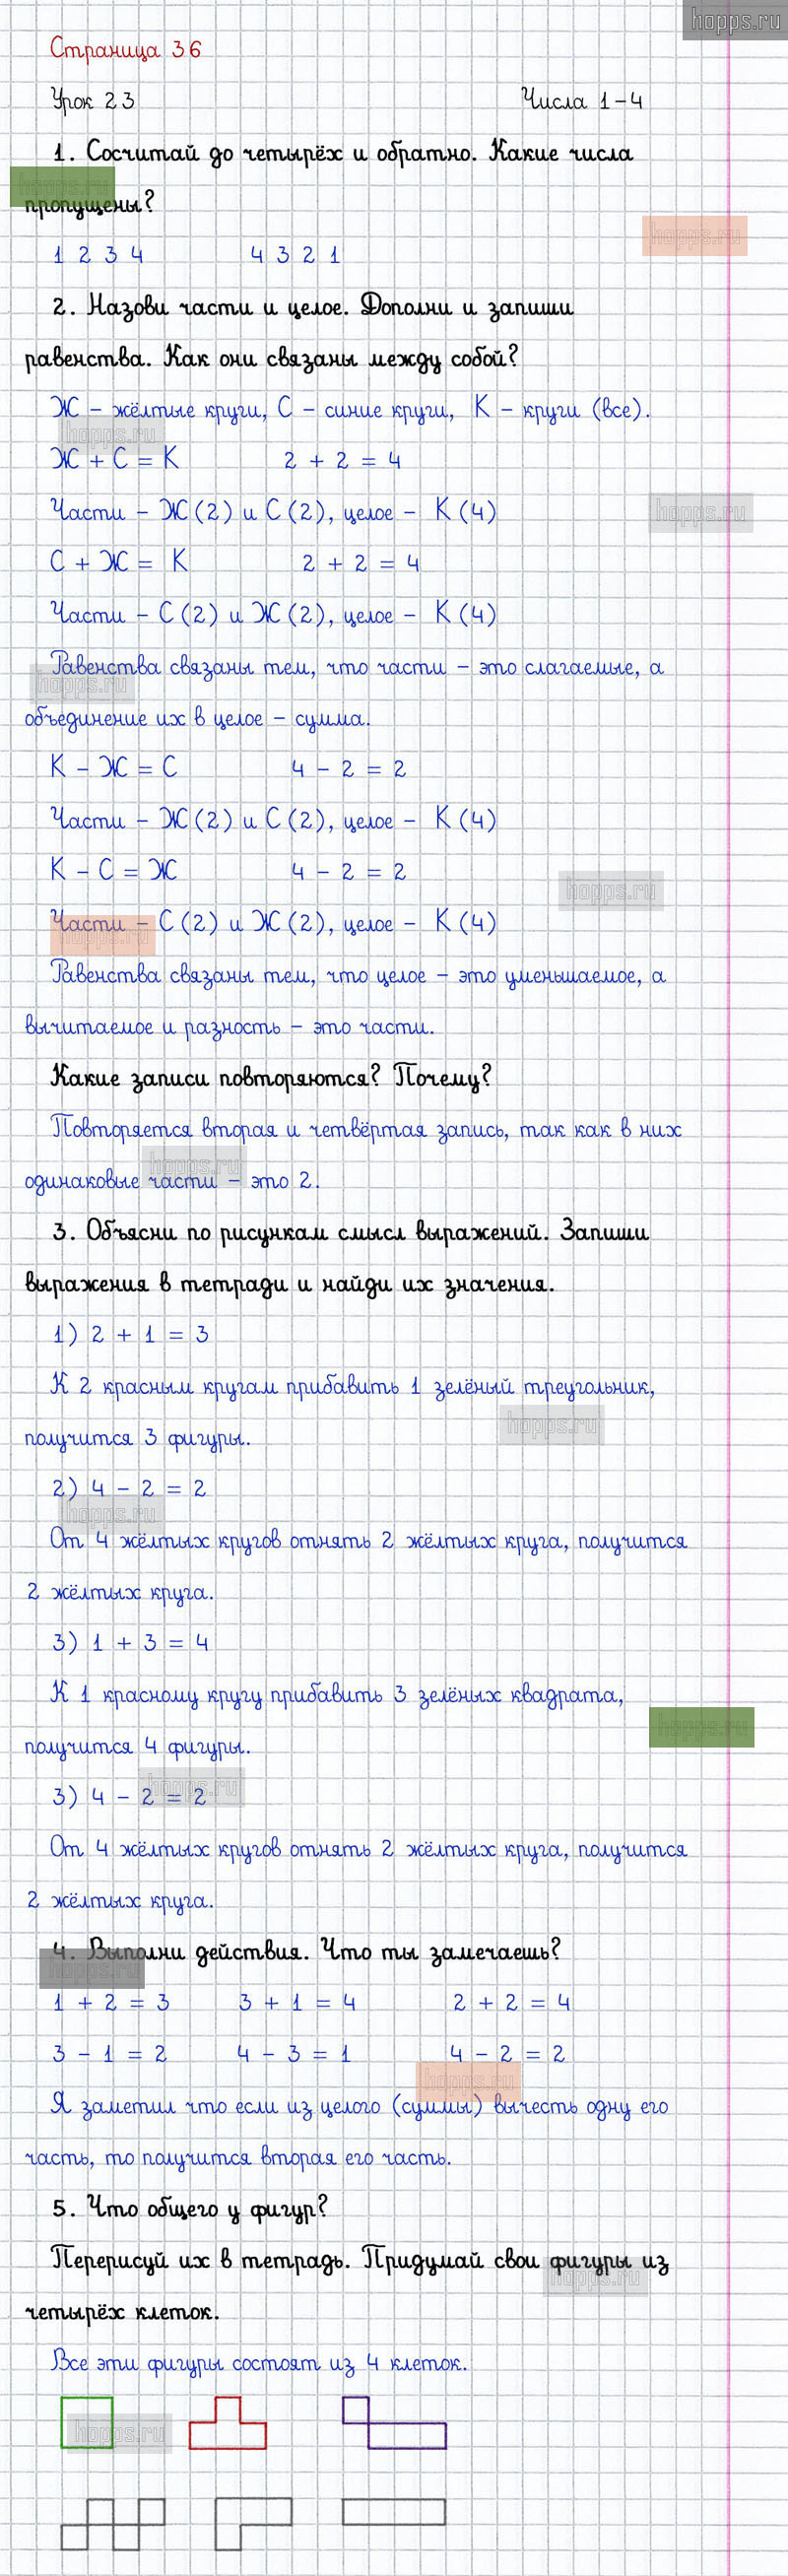 hopps.ru
Страница 36
Урок 23 Числа 1–4
1. Сосчитай до четырёх и обратно. Какие числа
hopps.ru
пропущены?
hopps.ru
1 2 3 4 4 3 2 1
2. Назови части и целое. Дополни и запиши
равенства. Как они связаны между собой?
Ж – жёлтые круги, С – синие круги, К – круги (все).
hopps.ru
Ж + С = К 2 + 2 = 4
Части – Ж (2) и С (2), целое – К (4)
hopps.ru
С + Ж = К 2 + 2 = 4
Части – С (2) и Ж (2), целое – К (4)
Равенства связаны тем, что части – это слагаемые, а
hopps.ru
объединение их в целое – сумма.
К – Ж = С 4 – 2 = 2
Части – Ж (2) и С (2), целое – К (4)
К – С = Ж 4 – 2 = 2
hopps.ru
Части – С (2) и Ж (2), целое – К (4)
hopps.ru
Равенства связаны тем, что целое – это уменьшаемое, а
вычитаемое и разность – это части.
Какие записи повторяются? Почему?
Повторяется вторая и четвёртая запись, так как в них
hopps.ru
одинаковые части – это 2.
3. Объясни по рисункам смысл выражений. Запиши
выражения в тетради и найди их значения.
1) 2 + 1 = 3
К 2 красным кругам прибавить 1 зелёный треугольник,
hopps.ru
получится 3 фигуры.
2) 4 – 2 = 2
hopps.ru
От 4 жёлтых кругов отнять 2 жёлтых круга, получится
2 жёлтых круга.
3) 1 + 3 = 4
К 1 красному кругу прибавить 3 зелёных квадрата,
hopps.ru
получится 4 фигуры.
hopps.ru
3) 4 – 2 = 2
От 4 жёлтых кругов отнять 2 жёлтых круга, получится
2 жёлтых круга.
4. Выполни действия. Что ты замечаешь?
hopps.ru
1 + 2 = 3 3 + 1 = 4 2 + 2 = 4
3 – 1 = 2 4 – 3 = 1 4 – 2 = 2
hopps.ru
Я заметил что если из целого (суммы) вычесть одну его
часть, то получится вторая его часть.
5. Что общего у фигур?
Перерисуй их в тетрадь. Придумай свои фигуры из
hopps.ru
четырёх клеток.
Все эти фигуры состоят из 4 клеток.
hopps.ru